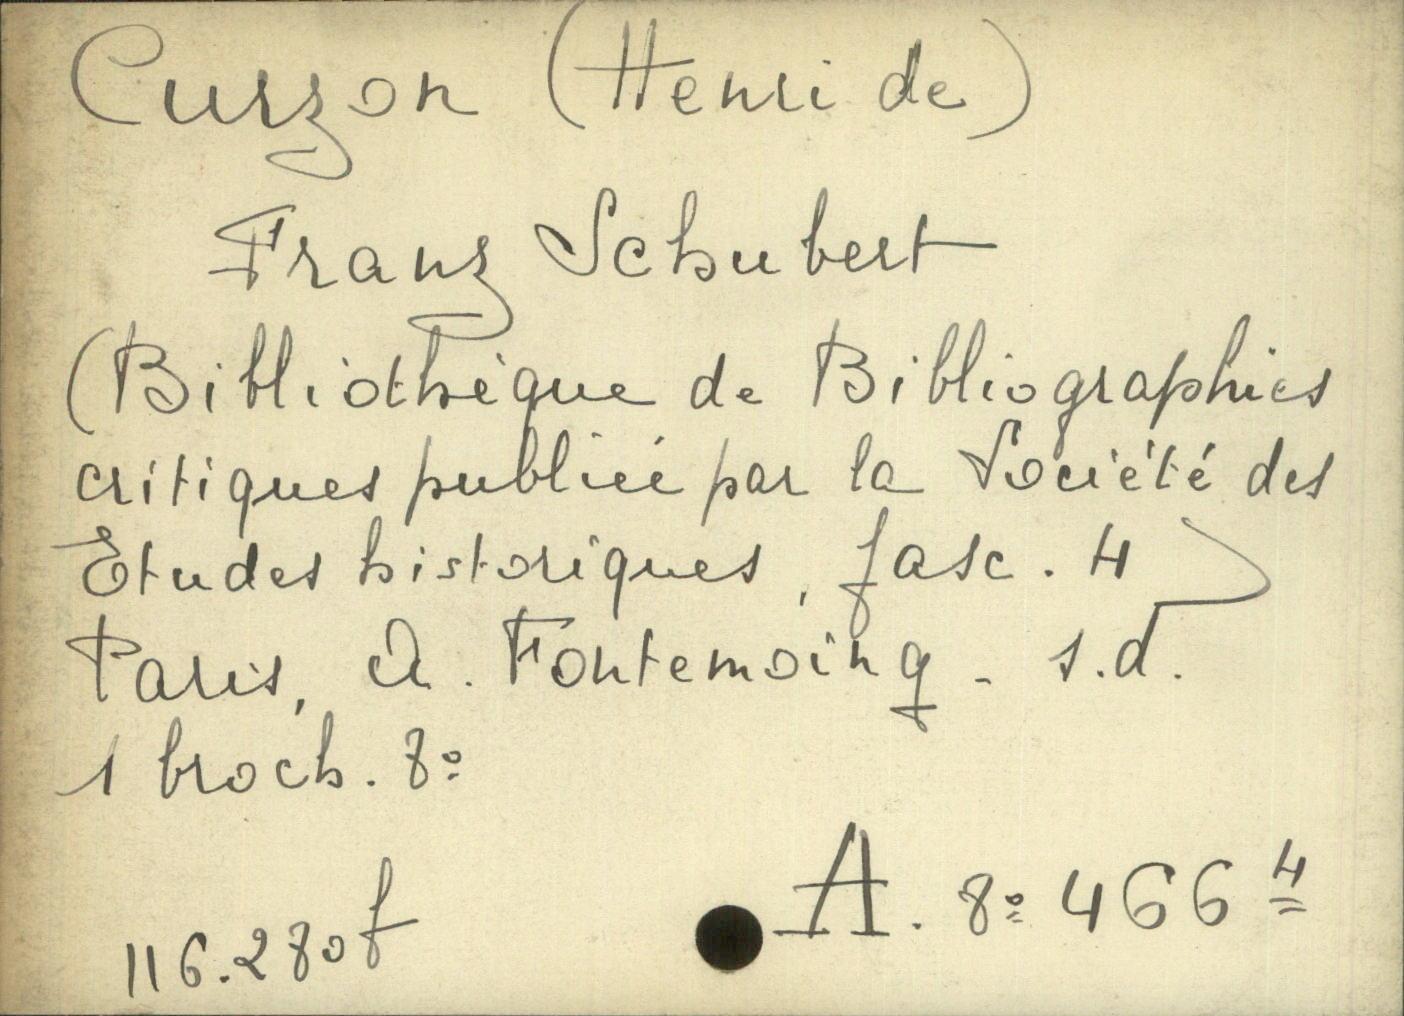 Curzon (Henri de)
Franz Schubert
(Bibliothèque de Bibliographies
critiques publiée par la Société des
Etudes historiques, fasc. 4)
Paris, A. Fontemoing - s.d.
1 broch. 8º
A. 8º 466 4
116.280 f